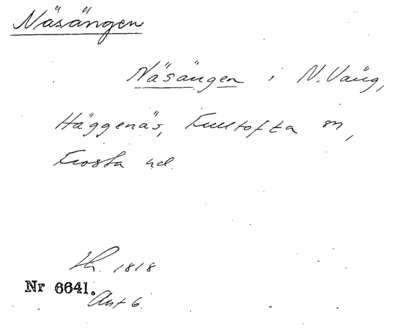 Näsängen
Näsängen i N. Vång,
Häggenäs, Fulltofta sn,
Frosta hd.
Lh. 1818
Nr 6641.
Akt 6.